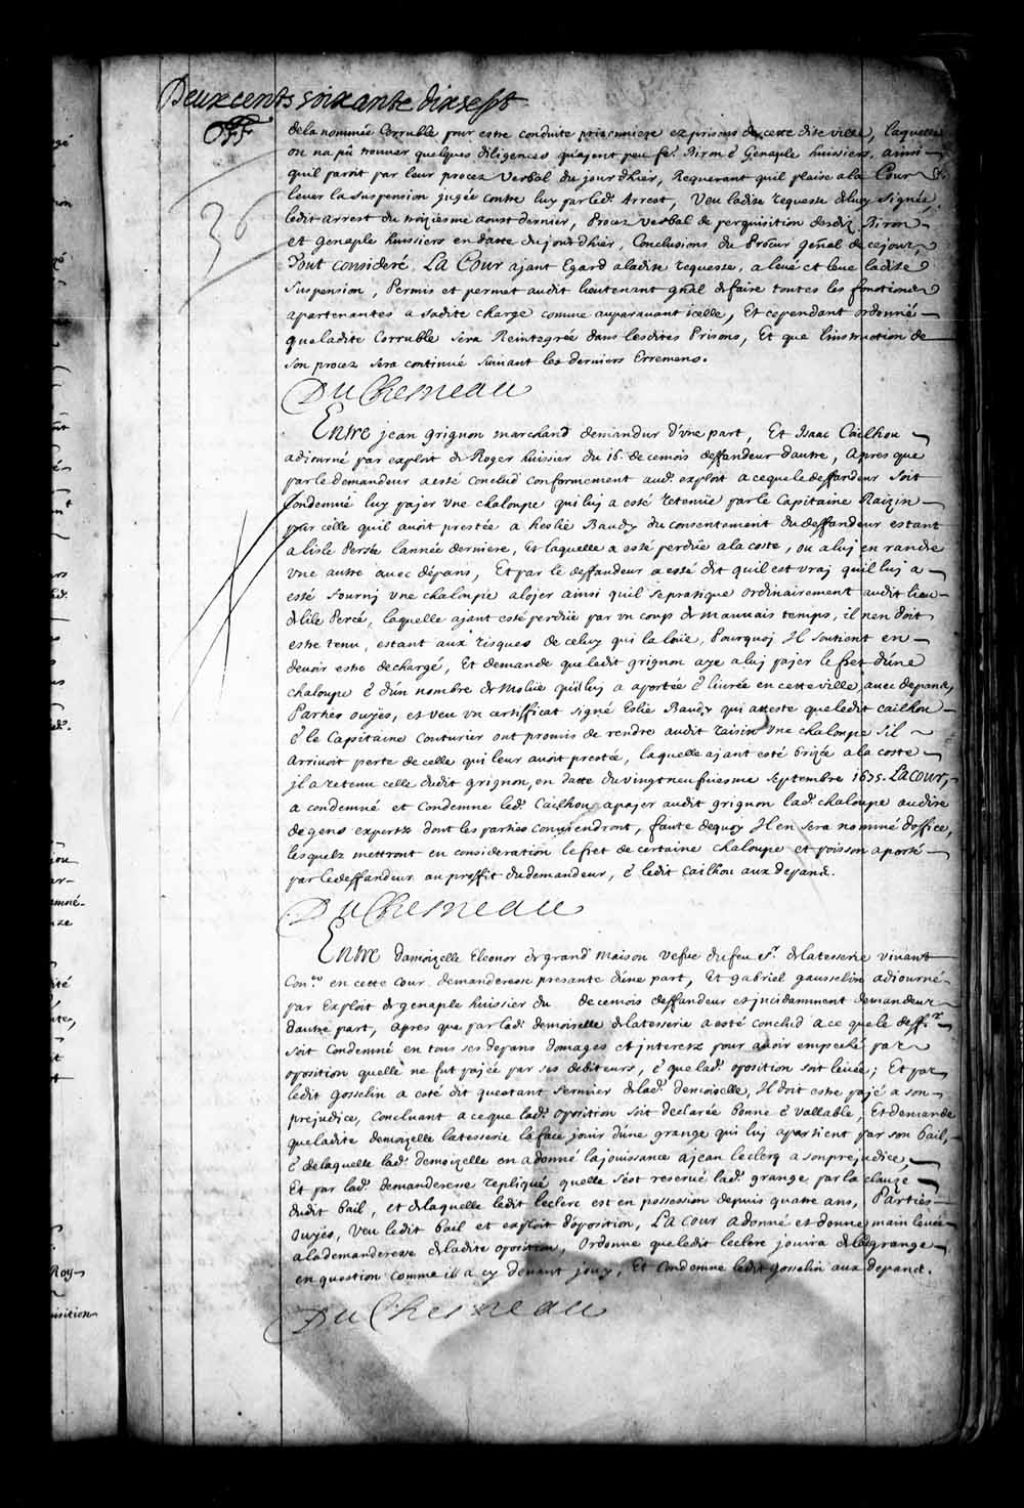 Deux cents soixante dix sept
de la nommée Corruble pour estre conduite prisonniere ez prisons de cette dite ville, laquelle
on na pû trouver quelques diligences quayent peu fe. Biron & Genaple huissiers, ainsi
quil paroit par leur procez verbal du jourdhier, Requerant quil plaise a la Cour
lever la suspension jugée contre luy par led. Arrest, Veu ladite requeste de luy signée,
ledit arrest du troiziesme aoust dernier, Procez verbal de perquisition desd. Biron
et genaple huissiers en datte du jourdhier, Conclusions du Procur gñal de ce jour,
Tout consideré, La Cour ajant Egard a ladite requeste, a levé et leve ladite
suspension, Permis et permet audit lieutenant gñal de faire toutes les fonctions
apartenantes a sadite charge comme auparavant icelle, Et cependant ordonné
que ladite Corruble sera Reintegrée dans lesdites Prisons, Et que linstruction de
son procez sera continué suivant les derniers Erremens.
DuChesneau
Entre jean grignon marchand demandeur d'une part, Et Isaac Cailhou
adiourné par exploit de Roger huissier du 16. de ce mois deffandeur dautre, Apres que
par le demandeur a esté conclud conformement aud. exploit a ce que le deffandeur soit
Condemné luy pajer une chaloupe qui luj a esté retenüe par le Capitaine Raizin
pour celle quil avoit prestée a heslie Baudy du consentement du deffandeur estant
a lisle Persée lannée derniere, Et laquelle a esté perdüe a la coste, ou a luj en randre
une autre avec dépans, Et par le deffandeur a esté dit quil est vraj quil luj a
esté fournj une chaloupe a lojer ainsi quil se pratique ordinairement audit lieu
de lile Percé, laquelle ajant esté perdüe par un coup de Mauvais temps, il nen doit
estre tenu, estant aux risques de celuy qui la loüe, Pourquoj Il soutient en
devoir estre dechargé, Et demande que ledit grignon aye a luj pajer le fret d'une
chaloupe & d'un nombre de Molüe quil luj a aportée & livrée en cette ville avec depans,
Parties ouyes, et veu un certifficat signé Eslie Baudy qui atteste que ledit cailhou
& le Capitaine Couturier ont promis de rendre audit raisin une chaloupe sil
arrivoit perte de celle qui leur avoit prestée, laquelle ajant esté brizée a la coste
il a retenu celle dudit grignon, en datte du vingt neufviesme Septembre 1675. La cour,
a condemné et Condemne led. Cailhou a pajer audit grignon lad. chaloupe au dire
de gens expertz dont les parties conviendront, faute dequoy Il en sera nommé d'office,
lesquelz mettront en consideration le fret de certaine chaloupe et poisson aporté
par le deffandeur au proffit du demandeur, & ledit Cailhou aux depans.
DuChesneau
Entre damoizelle Eleonor de grand Maison vefve du feu sr. de latesserie vivant
Conr. en cette Cour demanderesse presante d'une part, Et gabriel gausselin adiourné
par Exploit de genaple huissier du de ce mois deffandeur et incidamment demandeur
dautre part, Apres que par lad. demoiselle de latesserie a esté conclud a ce que le deffr.
soit Condemné en tous ses depans domages et interestz pour avoir empeché par
oposition quelle ne fut pajée par ses debiteurs, & que lad. oposition soit levée; Et par
ledit gosselin a esté dit questant fermier de lad. demoiselle, Il doit estre pajé a son
prejudice, concluant a ce que lad. oposition soit declarée bonne & vallable, Et demande
que ladite demoizelle latesserie la face jouir d'une grange qui luj apartient par son bail,
& de laquelle lad. demoizelle en a donné la jouissance a jean leclerq a son prejudice,
Et par lad. demanderesse repliqué quelle s'est reservé lad. grange par la clauze
dudit bail, et de laquelle ledit leclerc est en possession depuis quatre ans, Parties
ouyes, Veu ledit bail et exploit d'oposition, La cour a donné et donne main levée
a la demanderesse de ladite oposition, Ordonne que ledit leclerc jouira de la grange
en question comme il a cy devant jouy, Et Condemne ledit gosselin aux depans.
DuChesneau